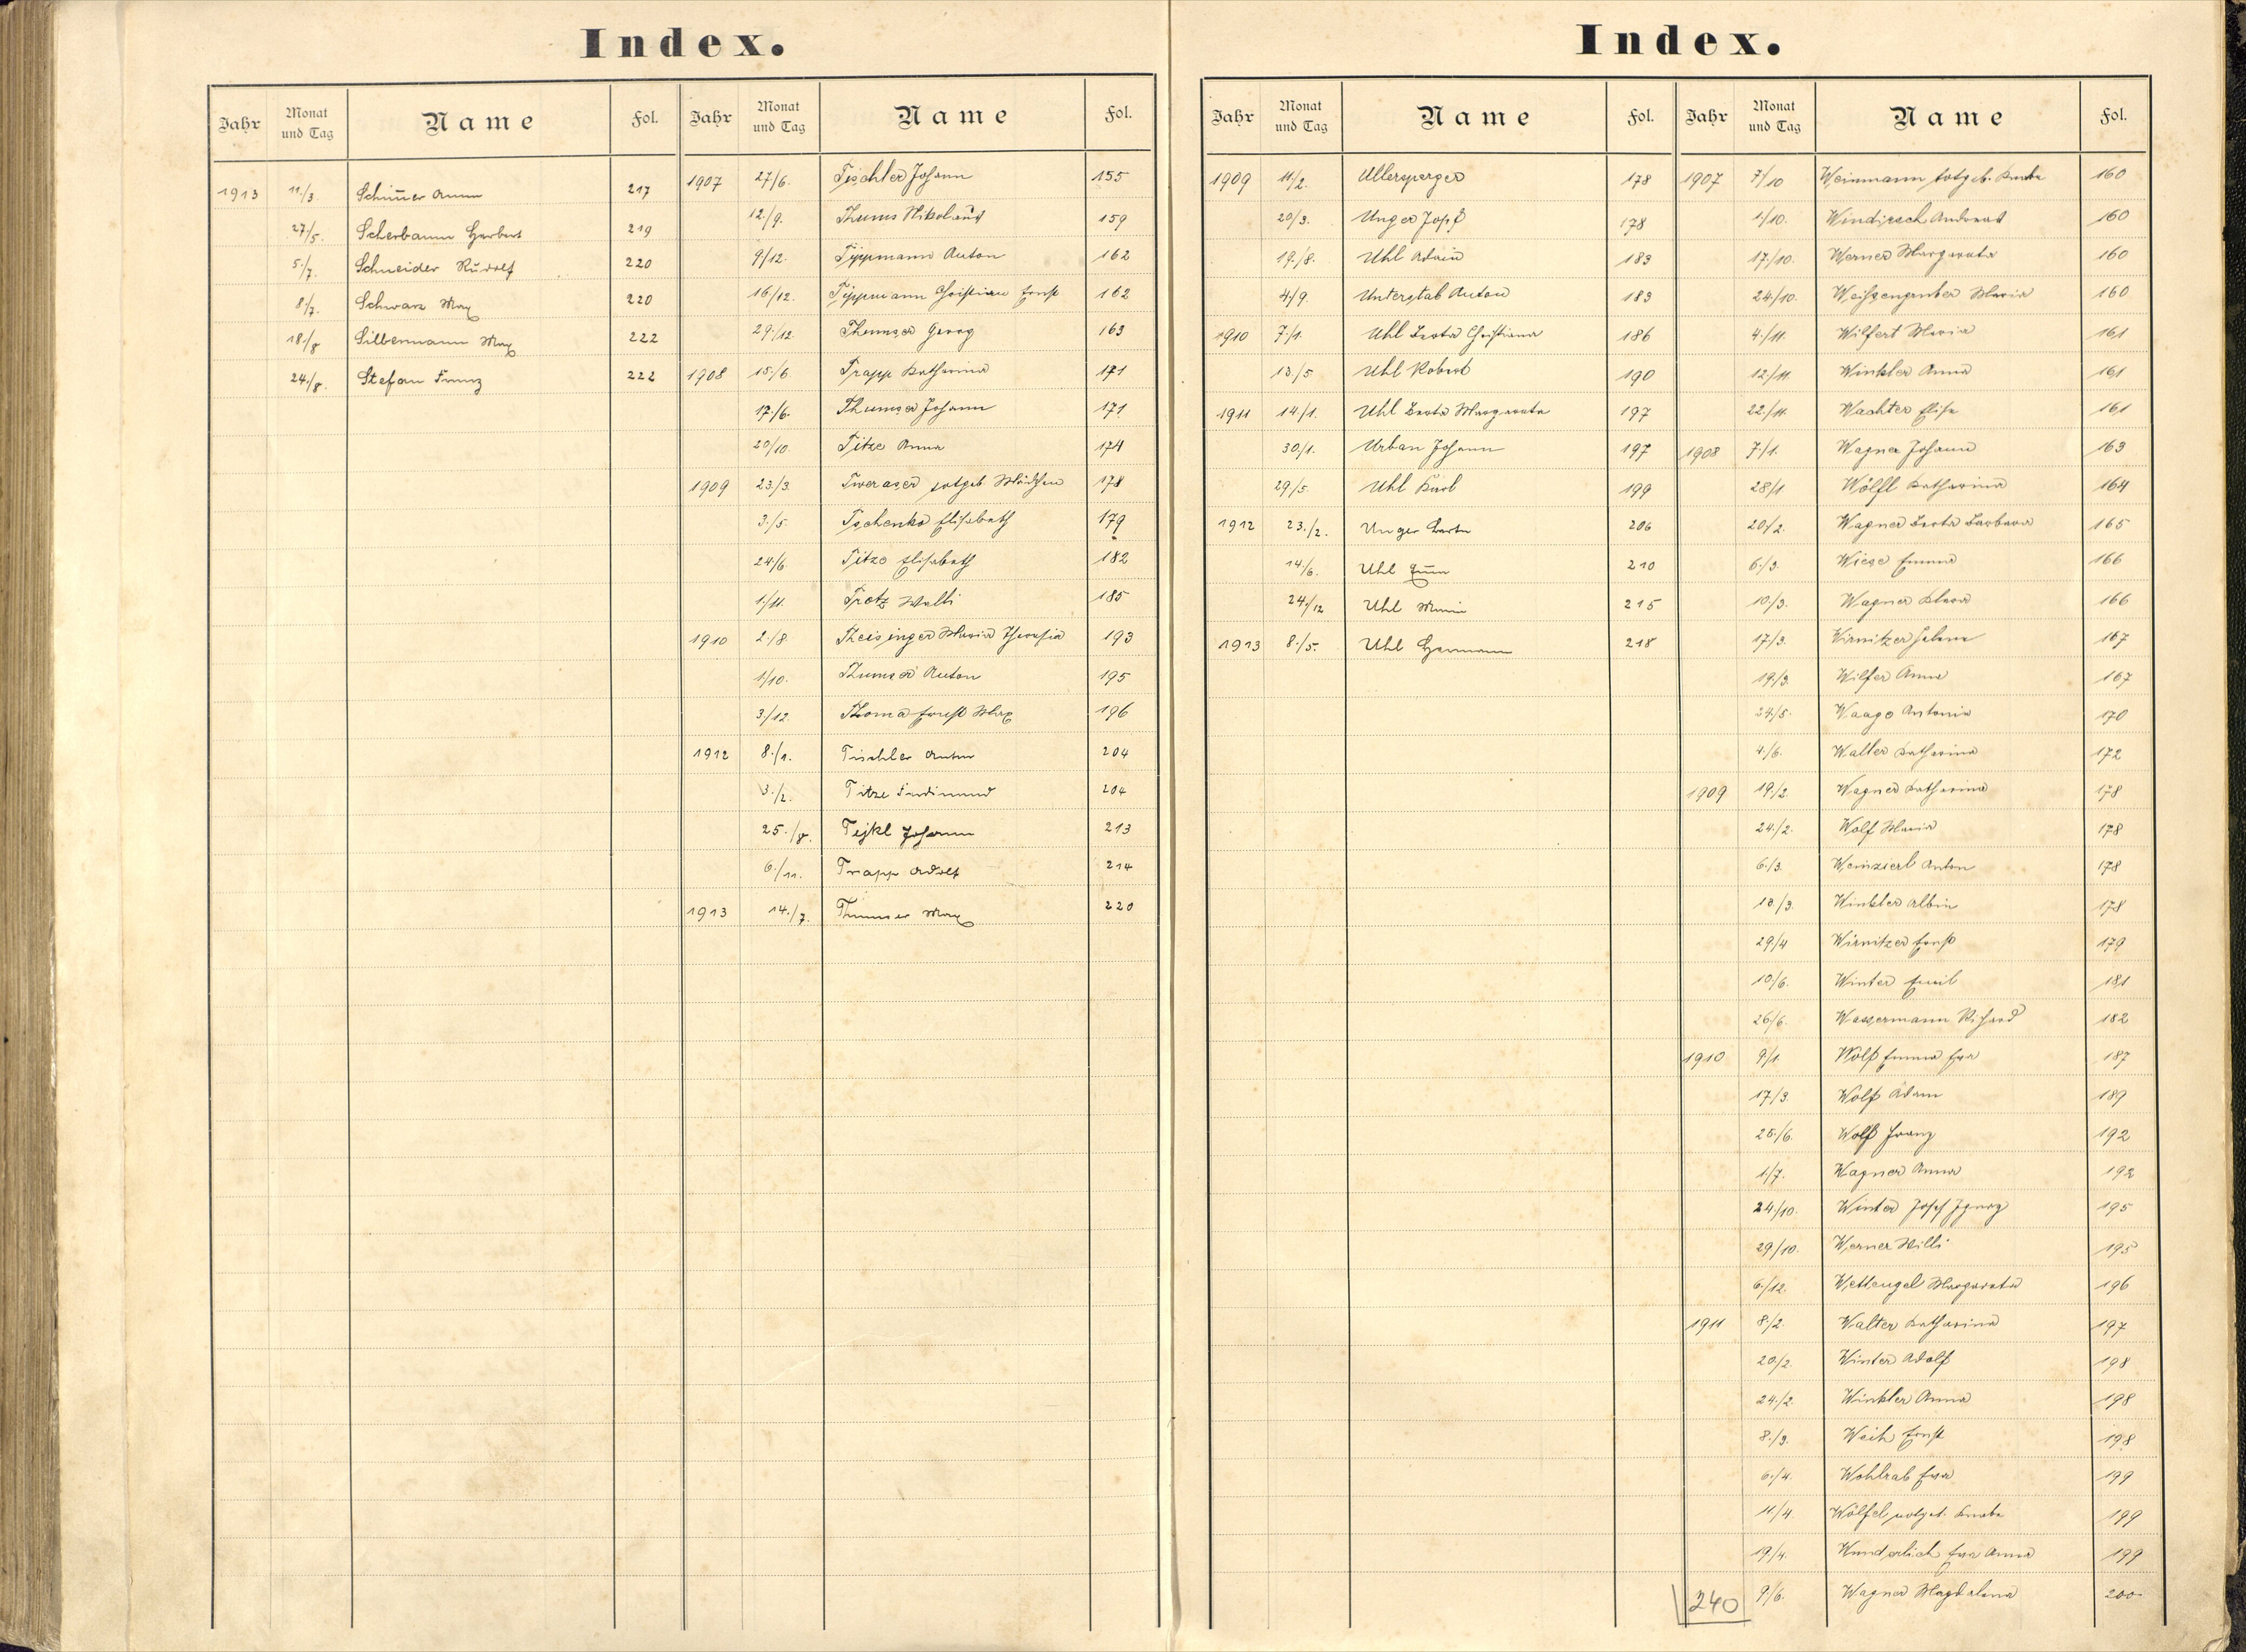 Index.
Jahr Monat und Tag Name Fol. Jahr Monat und Tag Name Fol.
1913 11./3. Anna 217
27/5. Scherbaum Herbert 219
5./7. Schneider Rudolf 220
8./7. Schwarz Max 220
18./8 Silbermann Max 222
24./8. Stefan Franz 222
1907 27/6. Tischler Johann 155
12./9. Thums Nikolaus 159
9/12. Tippmann Anton 162
16/12. Tippmann Christian Ernst 162
29./12. Thumser Georg 163
1908 15./6. Trapp Katharina 171
17./6. Thumser Johann 171
20/10. Titze Anna 174
1909 23./3. Tweraser totgeb. Mädchen 178
3./5. Tschenko Elisabeth 179
24./6. Titze Elisabeth 182
1./11. Trotz Walli 185
1910 2./8. Theisinger Maria Theresia 193
1./10. Thumser Anton 195
3./12. Thoma Ernst Max 196
1912 8./1. Tischler Anton 204
3./2. Titze Ferdinand 204
25./8. Tejkl Johann 213
6./11. Trapp Adolf 214
1913 14./7. Thumser Max 220
Index.
Jahr Monat und Tag Name Fol. Jahr Monat und Tag Name Fol.
1909 11/2. Ullersperger 178
20/3. Unger Josef 178
19./8. Uhl 183
4/9. Unterstab Anton 183
1910 7./1. Uhl Berta Christiana 186
13./5. Uhl Robert 190
1911 14./1. Uhl Berta Margareta 197
30./1. Urban Johann 197
29/5. Uhl Karl 199
1912 23./2. Unger Berta 206
14./6. Uhl 210
24./12 Uhl Maria 215
1913 8./5. Uhl Hermann 218
1907 7/10 Weinmann totgeb. Knabe 160
1/10. Windirsch Andreas 160
17./10. Werner Margareta 160
24./10. Weißengruber Maria 160
4./11. Wilfert Maria 161
12/11. Winkler Anna 161
22./11. Wachter Elise 161
1908 7./1. Wagner Johann 163
28/1 Wölfl Katharina 164
20/2. Wagner Berta Barbara 165
6./3. Wiese Emma 166
10./3. Wagner Klara 166
17./3. Wirnitzer Helene 167
19./3. Wilfer Anna 167
24/5. Waage Antonia 170
4./6. Walter Katharina 172
1909 19./2. Wagner Katharina 178
24./2. Wolf Maria 178
6./3. Weinzierl Anton 178
18./3. Winkler Albin 178
29./4 Wirnitzer Ernst 179
10/6. Winter Emil 181
26/6. Wassermann Richard 182
1910 9/1. Wolf Emma Eva 187
17/3. Wolf Adam 189
25./6. Wolf Franz 192
1/7. Wagner Anna 192
24./10. Winter Josef Ignaz 195
29/10. Werner Willi 195
6./12. Wettengel Margareta 196
1911 8./2. Walter Katharina 197
20./2. Winter Adolf 198
24./2. Winkler Anna 198
8./3. Weih Ernst 198
6./4. Wohlrab Eva 199
11/4. Wölfel totgeb. Knabe 199
19/4. Wunderlich Eva Anna 199
9./6. Wagner Magdalena 200
240